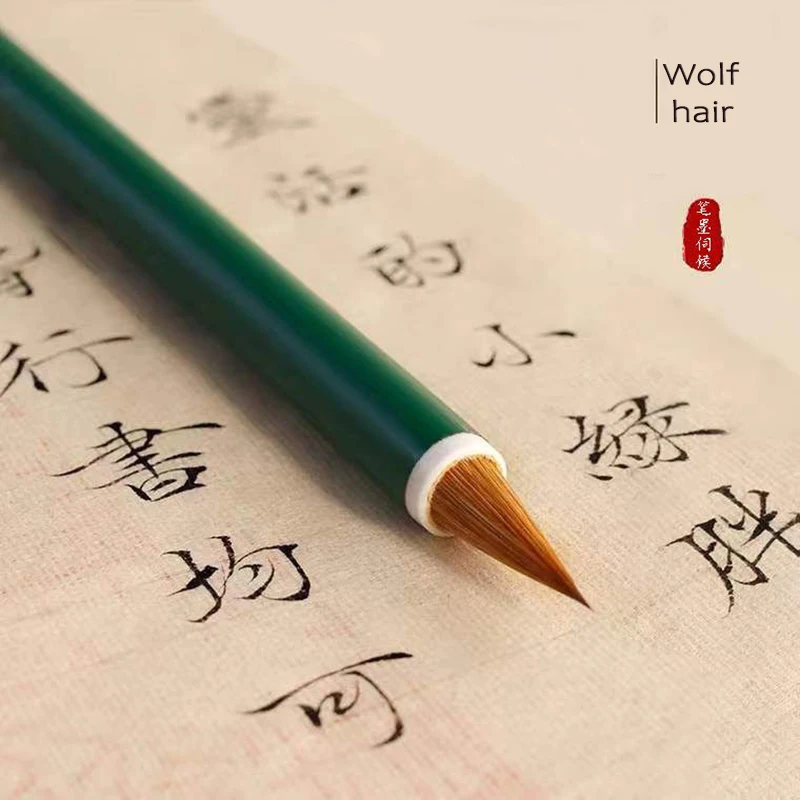 Wolf
hair
笔墨伺候
靈活的小綠胖
行書均可